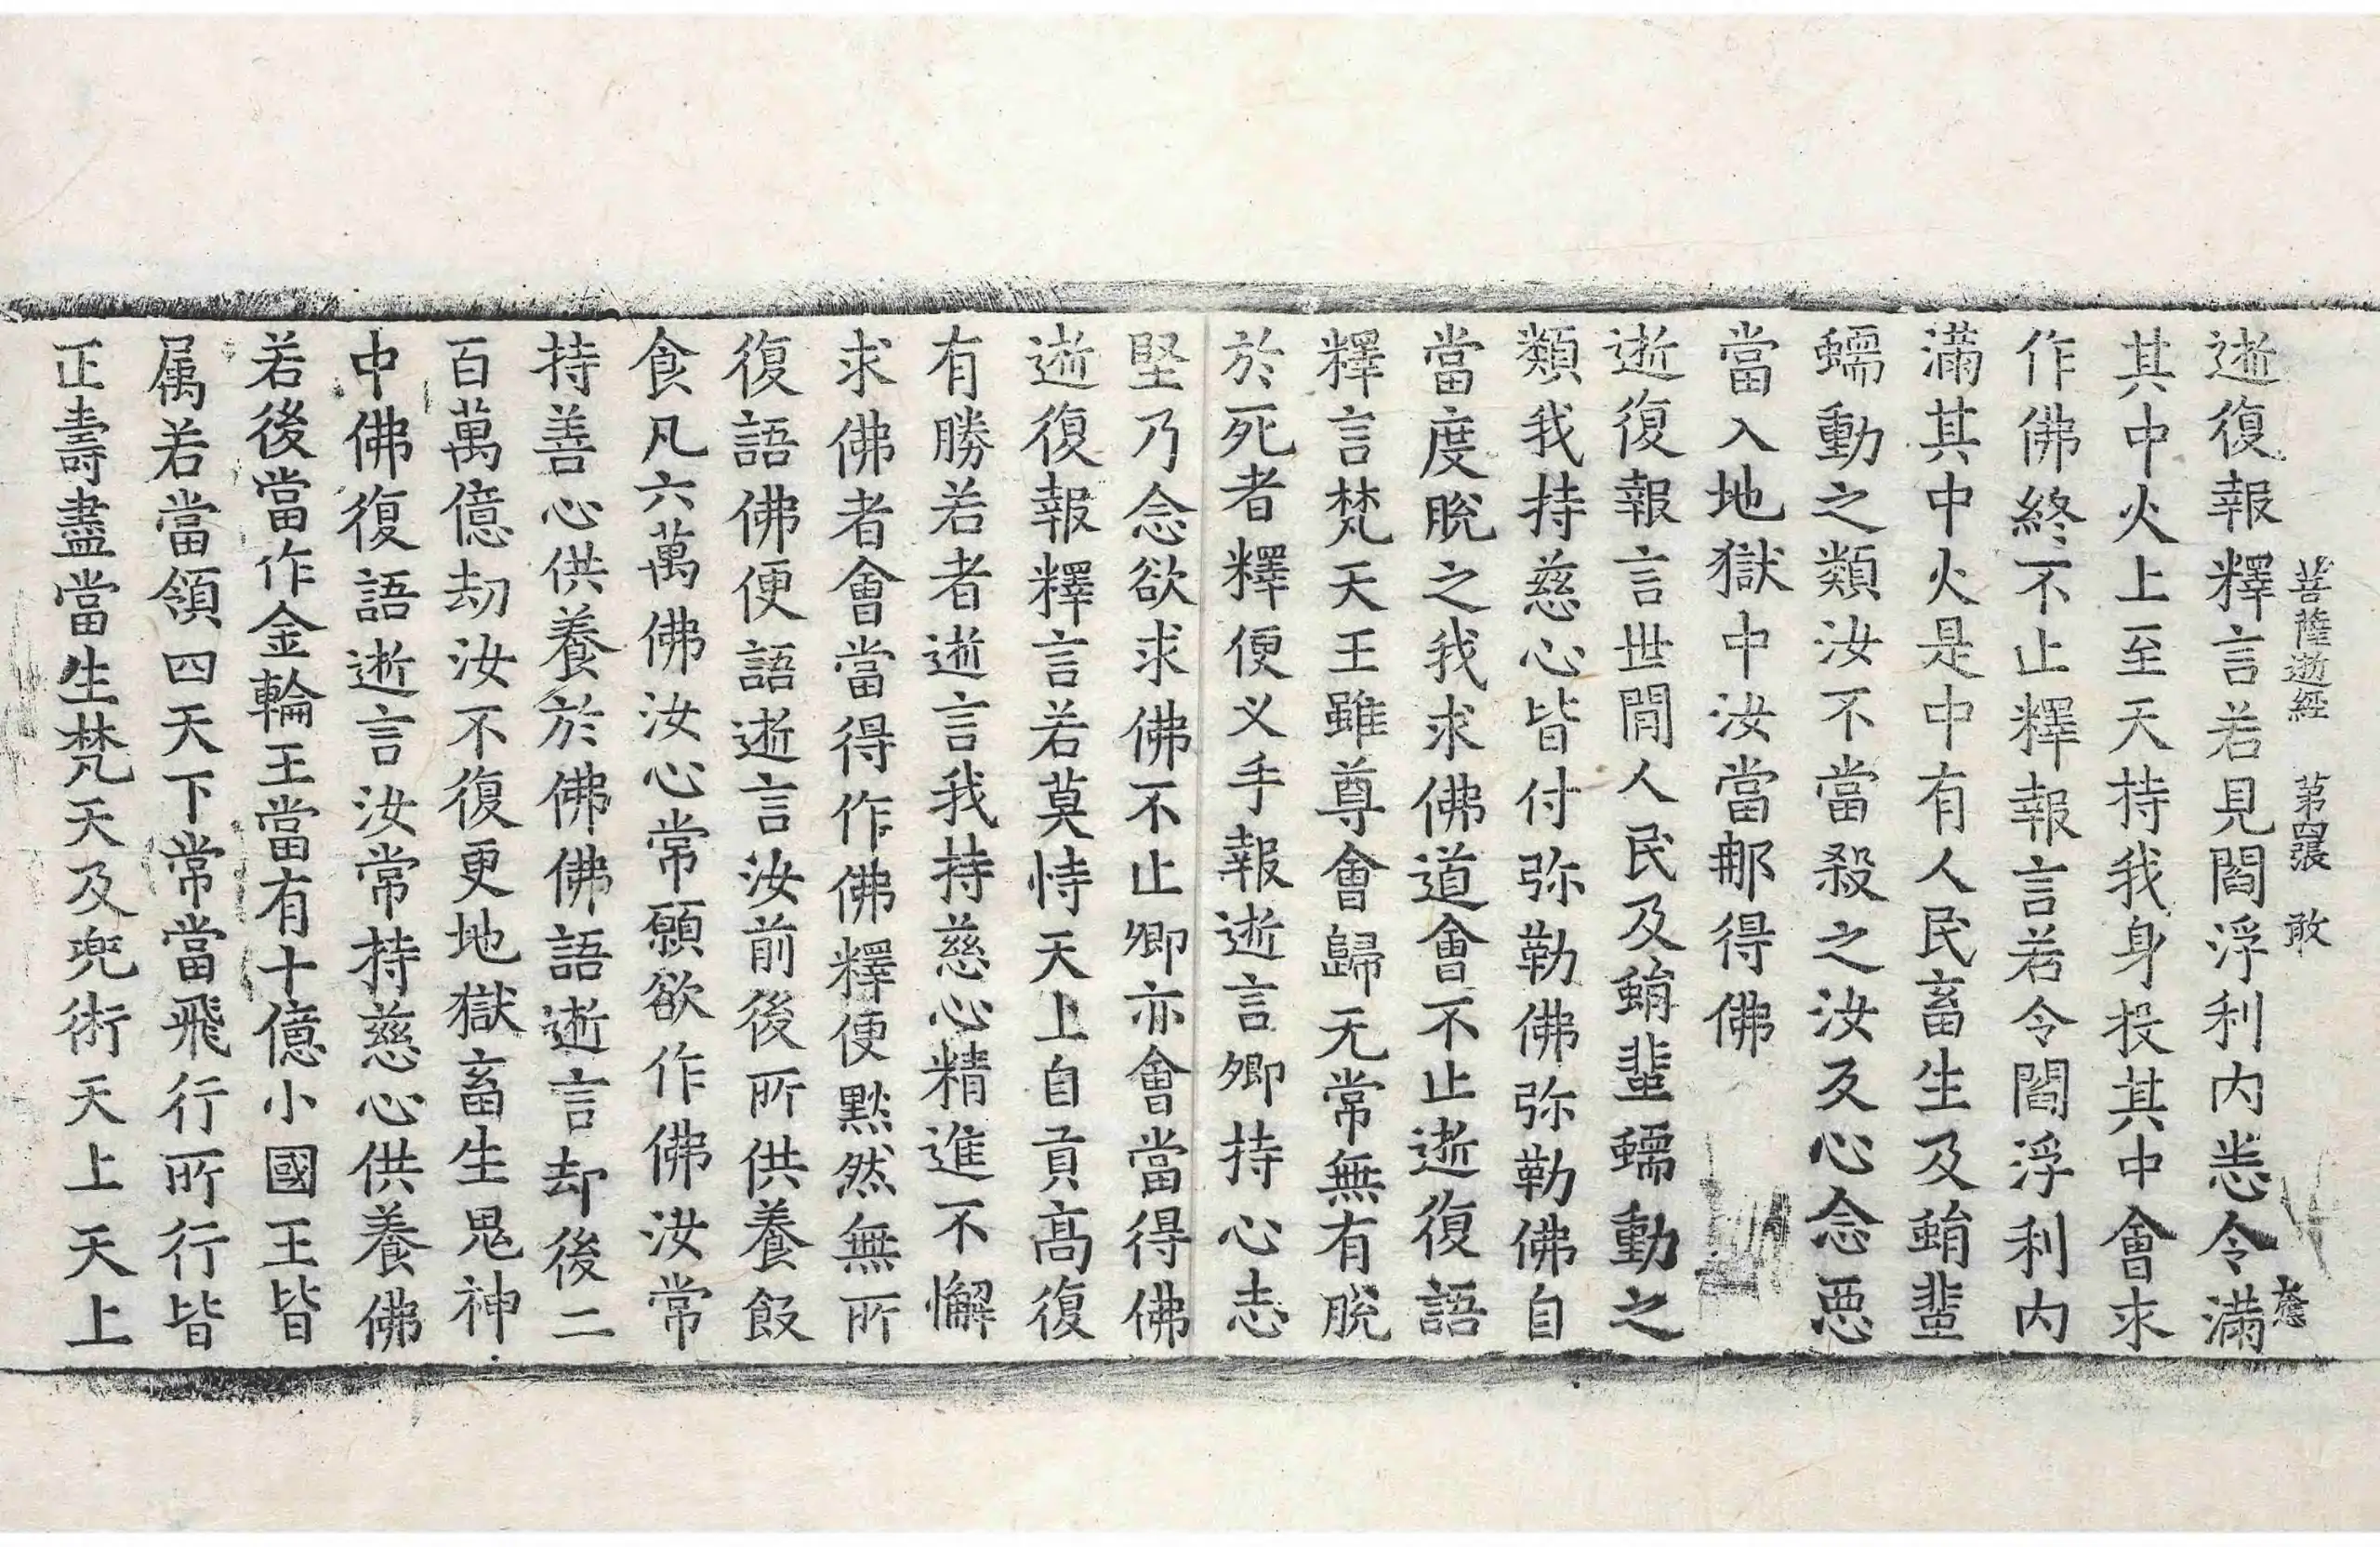 菩薩逝經　第四張　敢
逝復報釋言若見閻浮利内悉令滿
其中火上至天持我身投其中會求
作佛終不止釋報言若令閻浮利内
滿其中火是中有人民畜生及蜎蜚
蠕動之類汝不當殺之汝及心念惡
當入地獄中汝當那得佛
逝復報言世間人民及蜎蜚蠕動之
類我持慈心皆付弥勒佛弥勒佛自
當度脫之我求佛道會不止逝復語
釋言梵天王雖尊會歸无常無有脫
於死者釋便义手報逝言卿持心志
堅乃念欲求佛不止卿亦會當得佛
逝復報釋言若莫恃天上自貢高復
有勝若者逝言我持慈心精進不懈
求佛者會當得作佛釋便黙然無所
復語佛便語逝言汝前後所供養飯
食凡六萬佛汝心常願欲作佛汝常
持善心供養於佛佛語逝言却後二
百萬億劫汝不復更地獄畜生鬼神
中佛復語逝言汝常持慈心供養佛
若後當作金輪王當有十億小國王皆
属若當領四天下常當飛行所行皆
正壽盡當生梵天及兜術天上天上